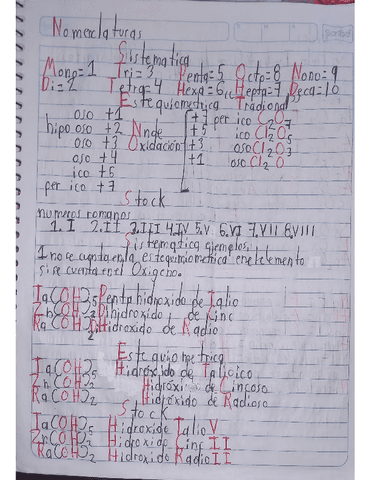 Nomenclaturas
Sistematica
Mono=1 Tri=3 Penta=5 Octo=8 Nono=9
Di=2 Tetra=4 Hexa=6 Hepta=7 Deca=10
Estequiometrica Tradional
oso +1 +7 per ico Cl2O7
hipo oso +2 Nnde +5 ico Cl2O5
oso +3 Oxidación +3 oso Cl2O3
oso +4 +1 oso Cl2O
ico +5
per ico +7
Stock
numeros romanos
1.I 2.II 3.III 4.IV 5.V 6.VI 7.VII 8.VIII
Sistematica ejemplos.
1 no se cuenta en la estequiometrica en el elemento
si se cuenta en el Oxigeno.
Ta(OH)5 Pentahidroxido de Talio
Zn(OH)2 Dihidroxido de Cinc
Ra(OH)2 Dihidroxido de Radio
Estequiometrica
Ta(OH)5 Hidroxido de Talicico
Zn(OH)2 Hidroxi de Cincoso
Ra(OH)2 Hidroxido de Radioso
Stock
Ta(OH)5 Hidroxido Talio V
Zn(OH)2 Hidroxido Cinc II
Ra(OH)2 Hidroxido Radio II